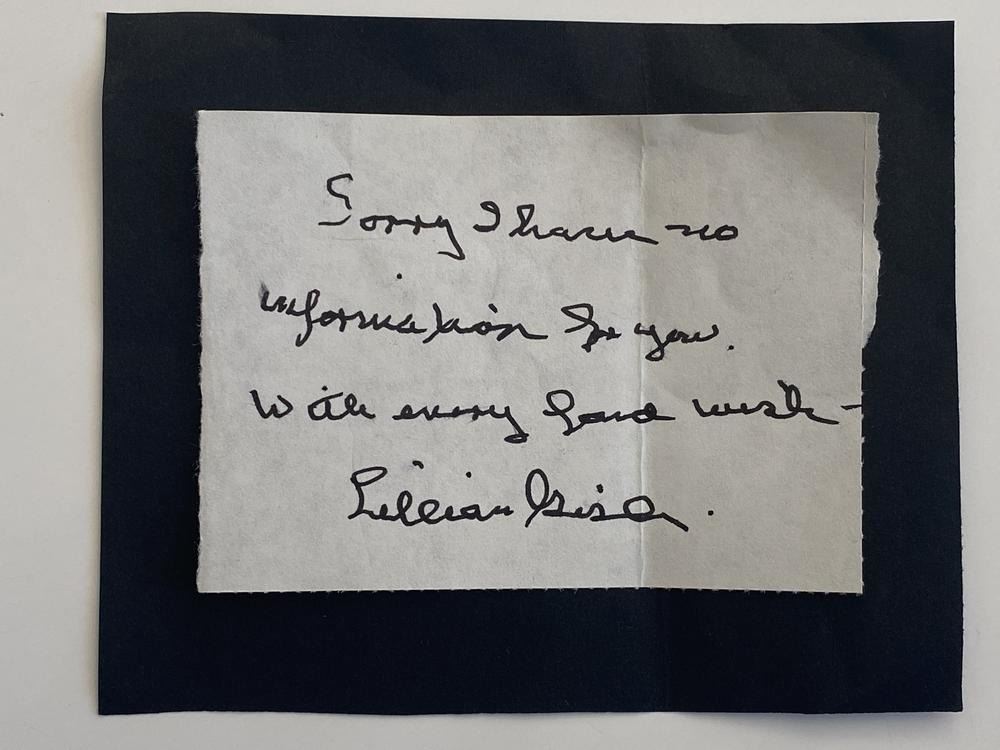 Sorry I have no
information for you.
With every good wish -
Lillian Gish.